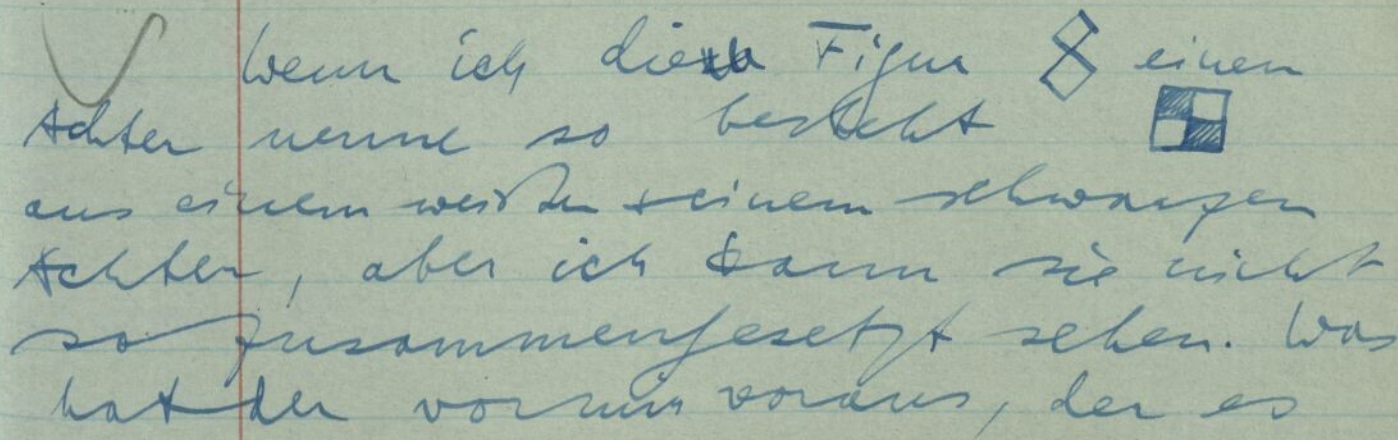 Wenn ich diese Figur einen
Achter nenne so besteht
aus einem weißen + einem schwarzen
Achter, aber ich kann sie nicht
so zusammengesetzt sehen. Was
hat der vor mir voraus, der es